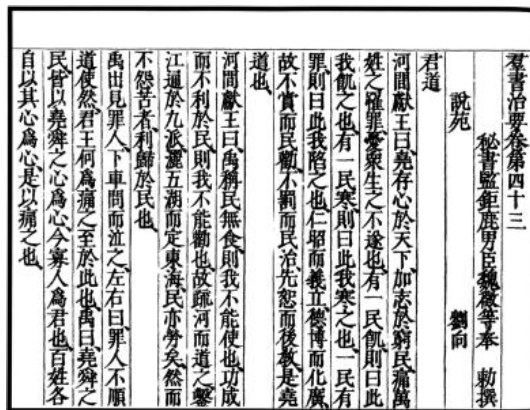 羣書治要卷第四十三
秘書監鉅鹿男臣魏徵等奉　勅撰
說苑　劉向
君道
河間獻王曰、堯存心於天下、加志於窮民、痛萬
姓之罹罪、憂衆生之不遂也、有一民飢、則曰此
我飢之也、有一民寒、則曰此我寒之也、一民有
罪、則曰此我陷之也、仁昭而義立、德博而化廣、
故不賞而民勸、不罰而民治、先恕而後教、是堯
道也、
河間獻王曰、禹稱民無食、則我不能使也、功成
而不利於民、則我不能勸也、故疏河而道之、鑿
江通於九派、灑五湖而定東海、民亦勞矣、然而
不怨苦者、利歸於民也、
禹出見罪人、下車問而泣之、左右曰、罪人不順
道使然、君王何爲痛之至於此也、禹曰、堯舜之
民、皆以堯舜之心爲心、今寡人爲君也、百姓各
自以其心爲心、是以痛之也、